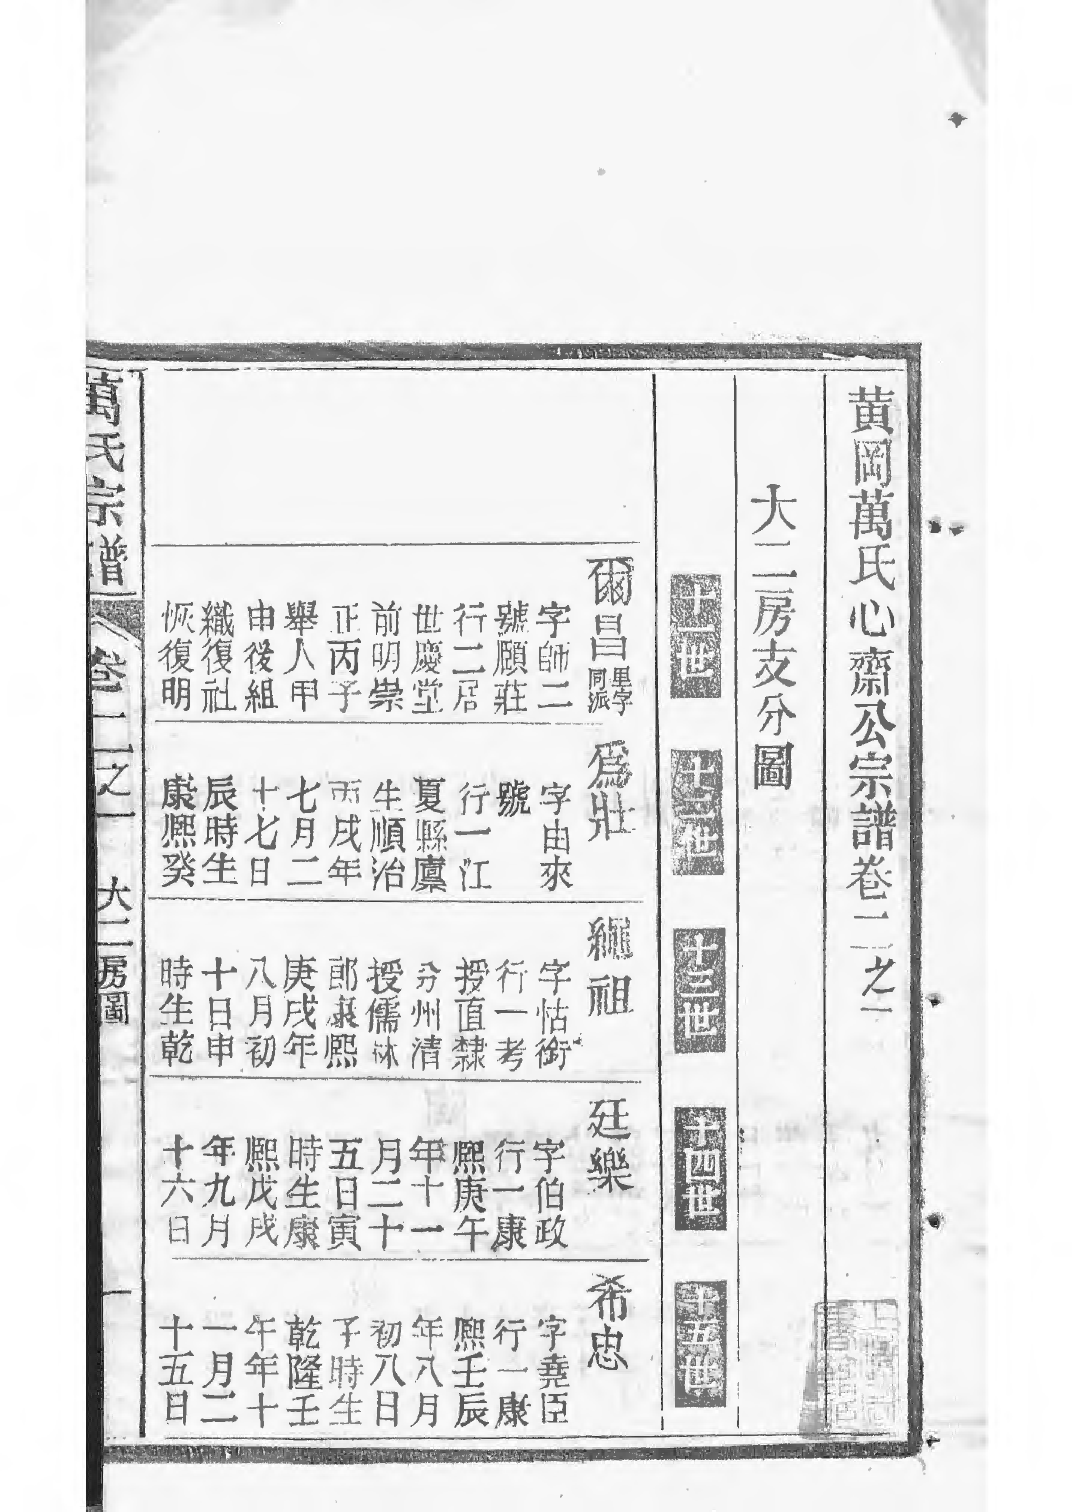 黃岡萬氏心齋公宗譜卷二之一
大二房支分圖
十一世
十二世
十三世
十四世
十五世
爾昌
里字
同派
字師二
號願莊
行二居
世慶堂
前明崇
正丙子
舉人甲
申後組
織復社
恢復明
爲壯
字由來
號
行一江
夏縣廩
生順治
丙戌年
七月二
十七日
辰時生
康熙癸
繩祖
字怙銜
行一考
授直隸
分州清
授儒林
郎康熙
庚戌年
八月初
十日申
時生乾
廷樂
字伯政
行一康
熙庚午
年十一
月二十
五日寅
時生康
熙戊戌
年九月
十六日
希忠
字堯臣
行一康
熙壬辰
年八月
初八日
子時生
乾隆壬
午年十
一月二
十五日
萬氏宗譜
卷二之一
大二房圖
一